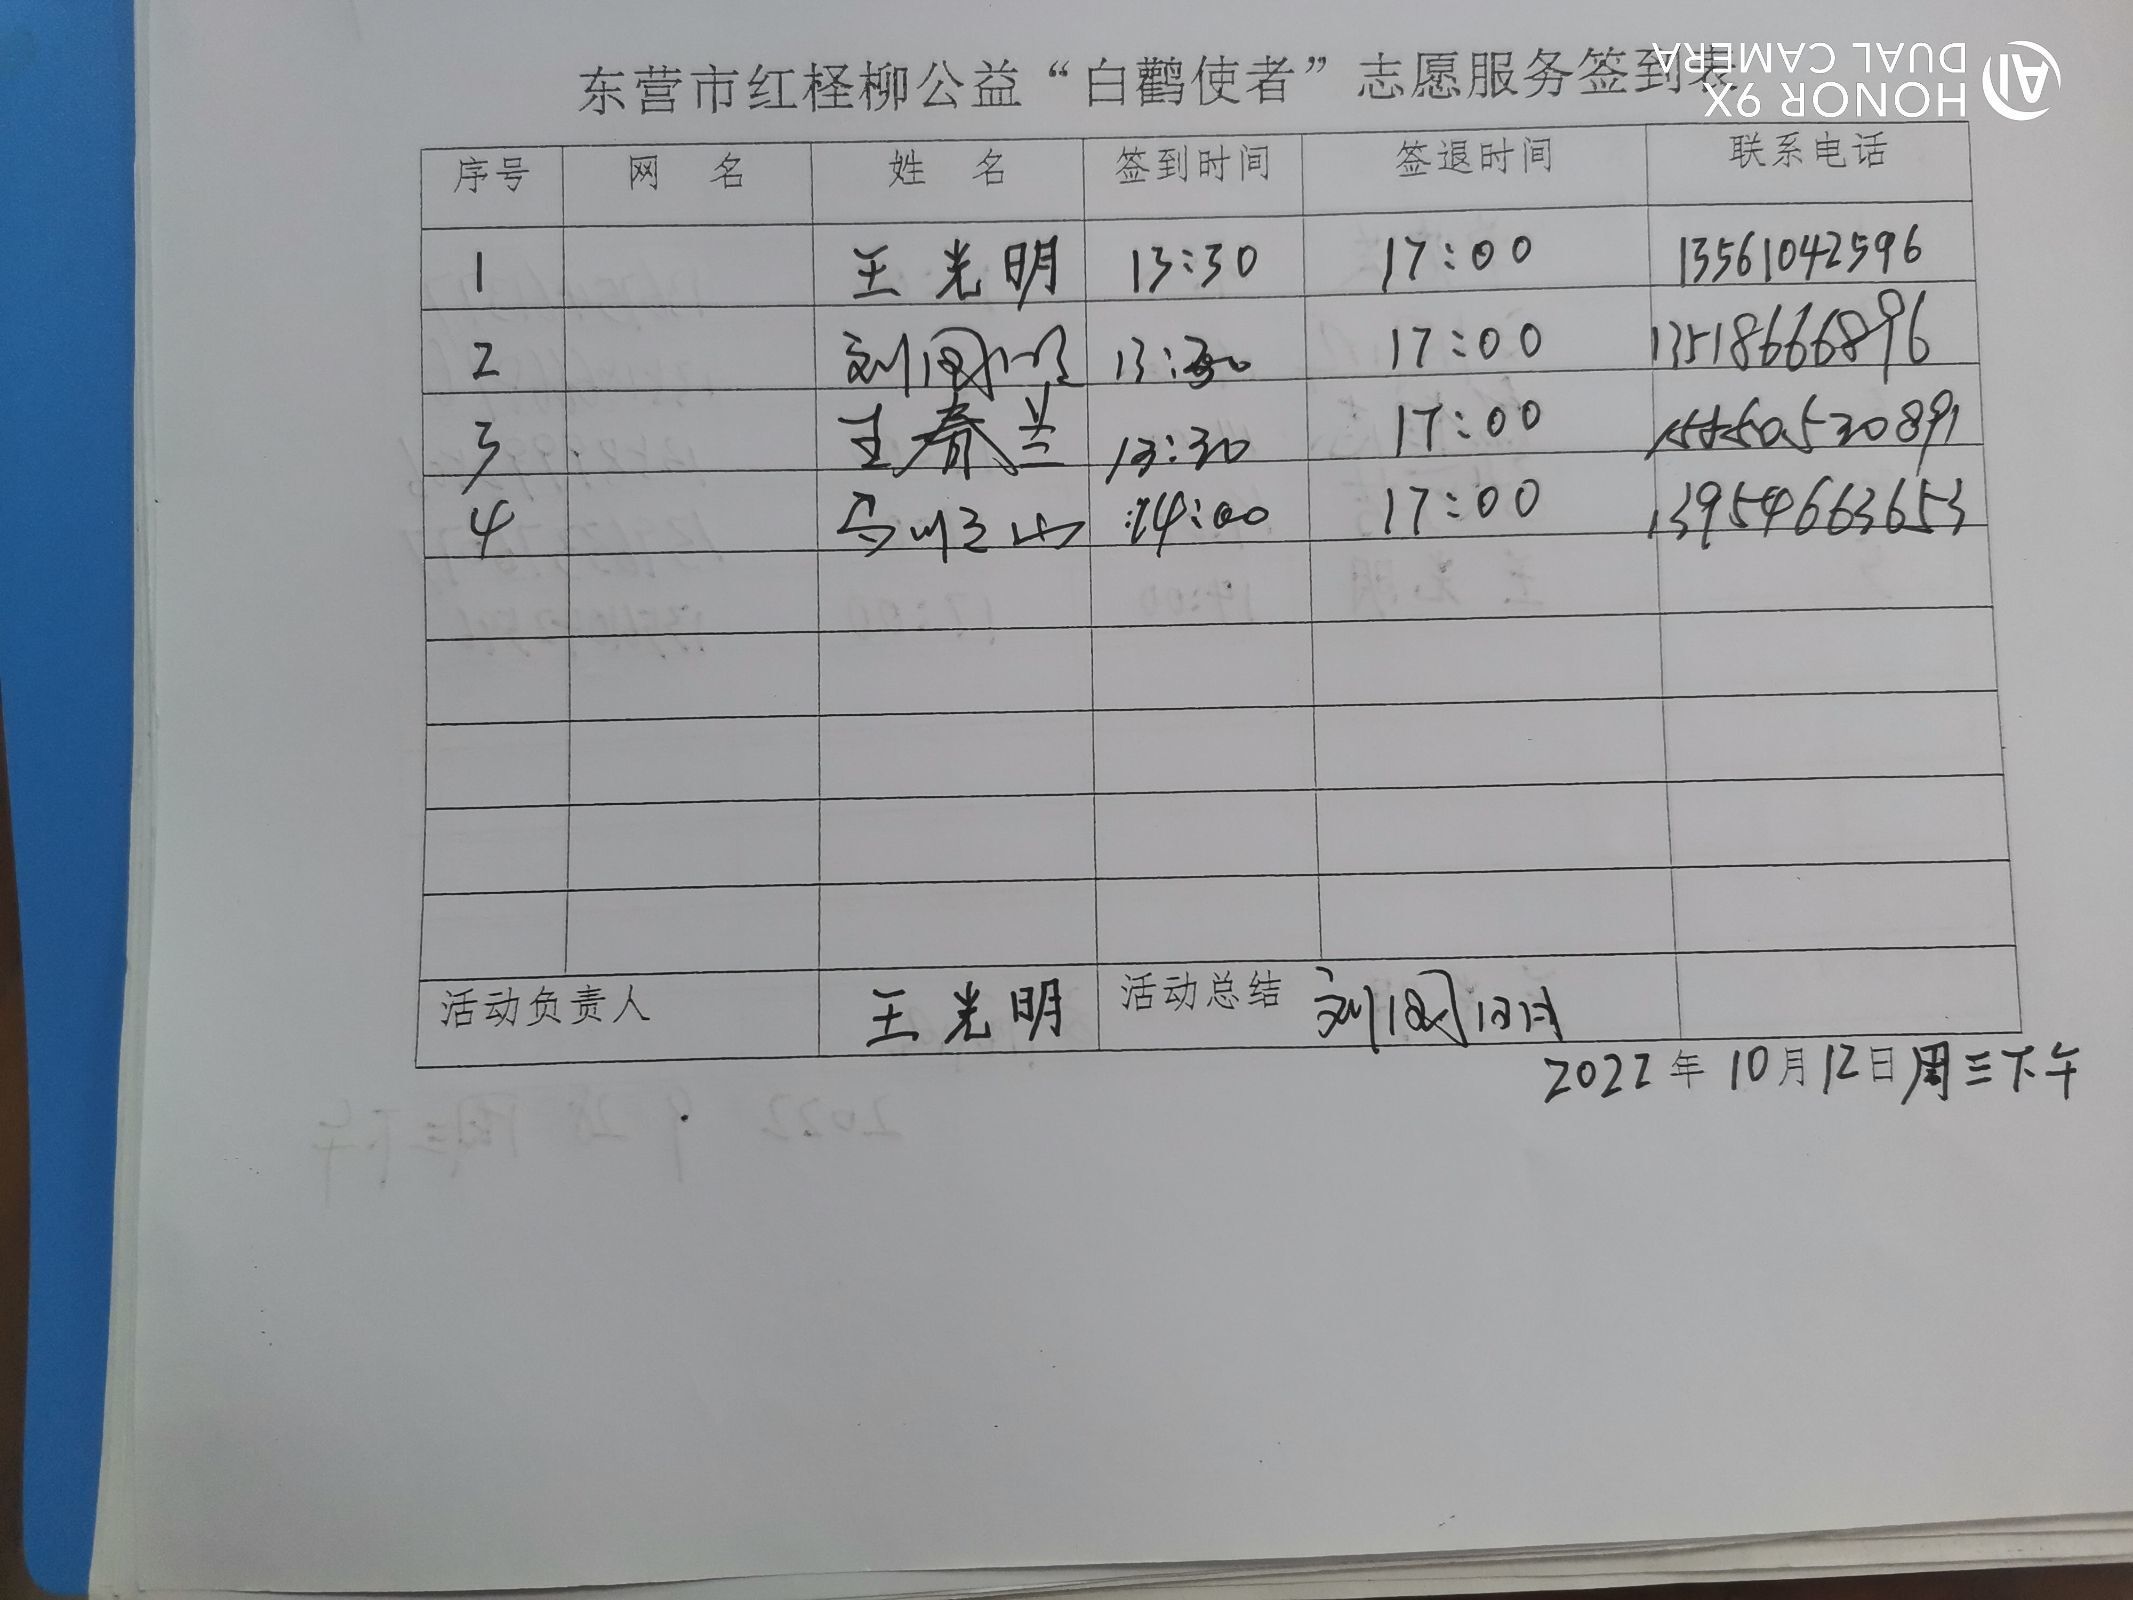 东营市红柽柳公益“白鹳使者”志愿服务签到表
序号 网 名 姓 名 签到时间 签退时间 联系电话
1 王光明 13:30 17:00 13561042596
2 刘国明 13:30 17:00 13518666896
3 王春兰 13:30 17:00 15550530891
4 14:00 17:00 13954663653
活动负责人 王光明 活动总结 刘国明
2022年10月12日周三下午
HONOR 9X
DUAL CAMERA
AI